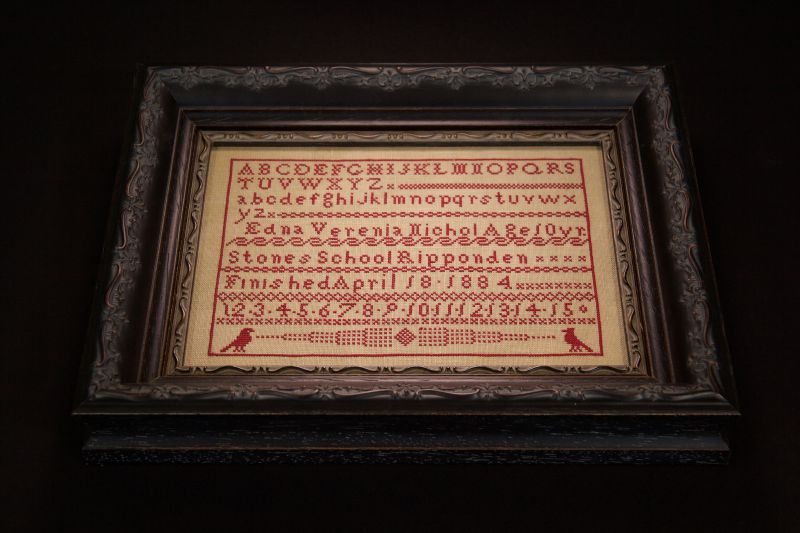 ABCDEFGHIJKLMNOPQRS
TUVWXYZ
abcdefghijklmnopqrstuvwx
yz
Edna Verenia Nichol Age 10yr
Stones School Ripponden
Finished April 18.1884.
12.3.4.5.6.7.8.9.101112131415